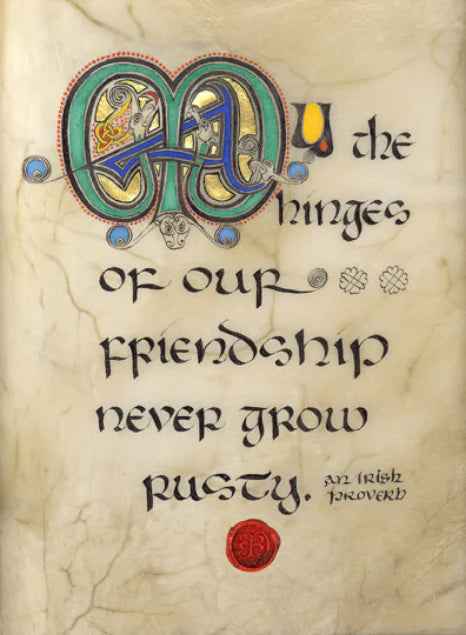 May the
hinges
of our
friendship
never grow
rusty.
An Irish
Proverb